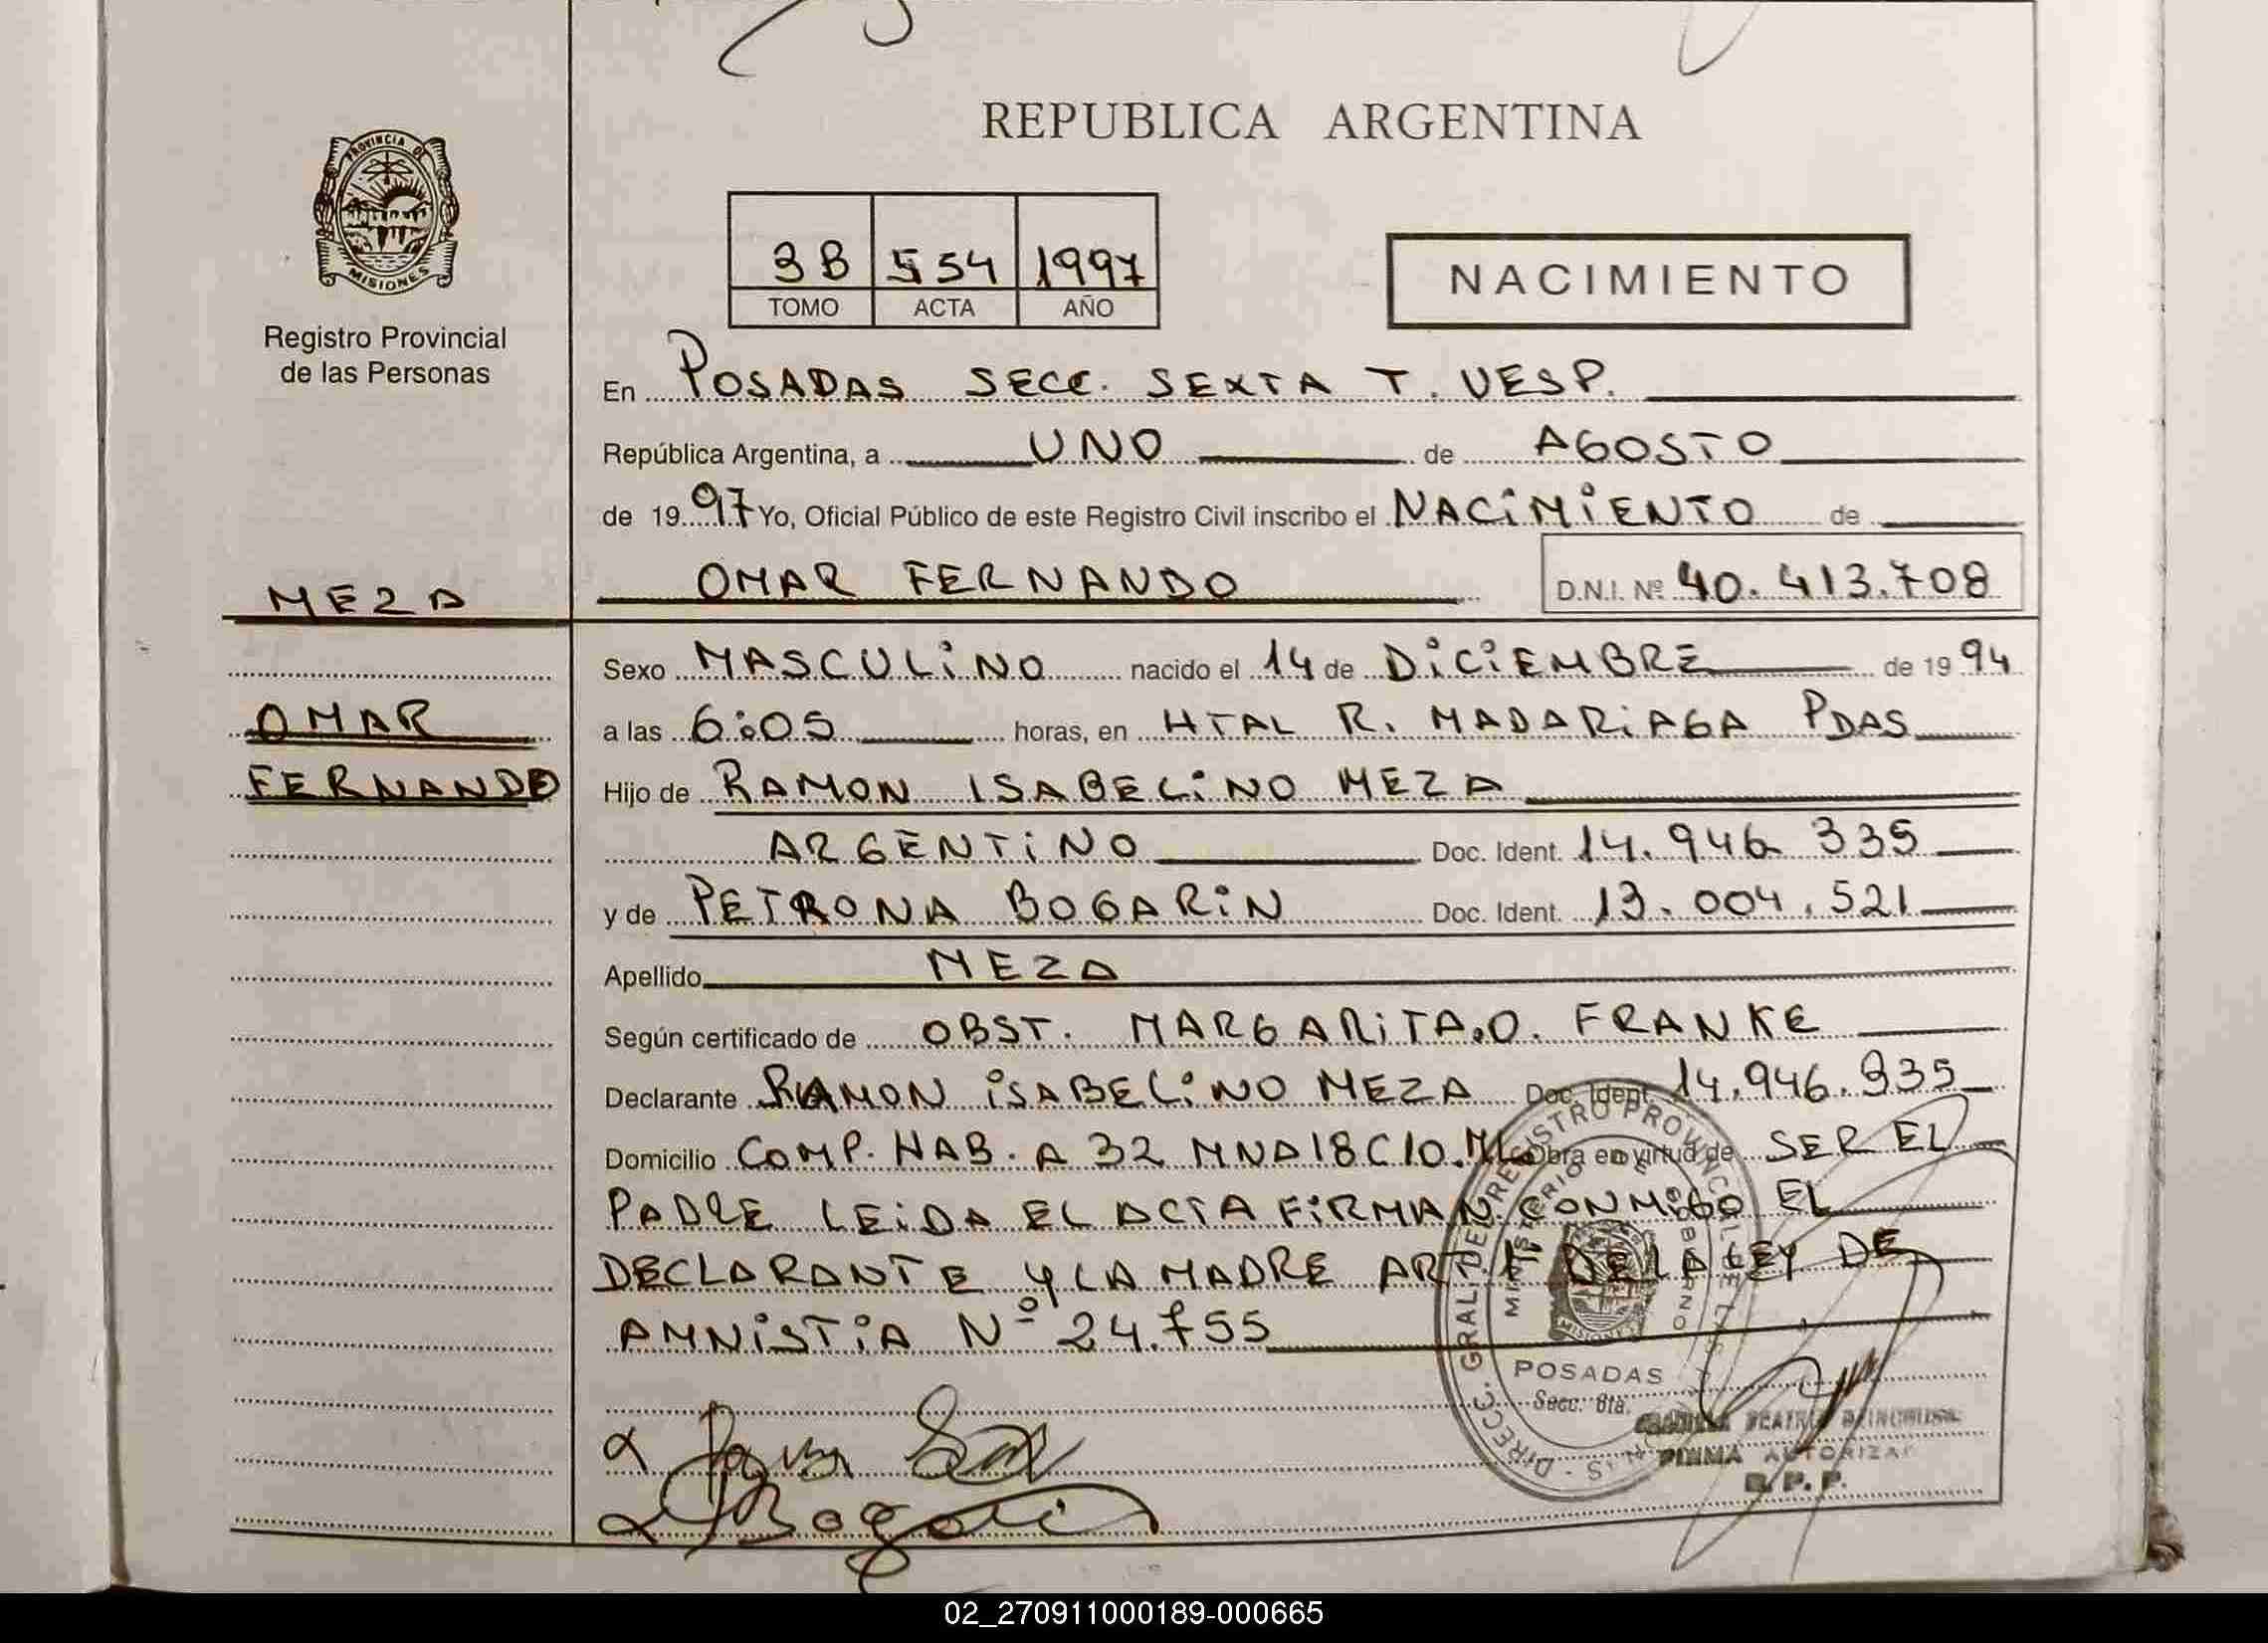 REPUBLICA ARGENTINA
PROVINCIA DE
MISIONES
Registro Provincial
de las Personas
3B 554 1997
TOMO ACTA AÑO
NACIMIENTO
En POSADAS SECC. SEXTA T. VESP.
República Argentina, a UNO de AGOSTO
de 1997 Yo, Oficial Público de este Registro Civil inscribo el NACIMIENTO de
MEZA
OMAR FERNANDO D.N.I. Nº 40.413.708
Sexo MASCULINO nacido el 14 de DICIEMBRE de 1994
OMAR
a las 6:05 horas, en HTAL R. MADARIAGA PDAS
FERNANDO
Hijo de RAMON ISABELINO MEZA
ARGENTINO Doc. Ident. 14.946 335
y de PETRONA BOGARIN Doc. Ident. 13.004.521
Apellido MEZA
Según certificado de OBST. MARGARITA.O. FRANKE
Declarante RAMON ISABELINO MEZA Doc. Ident. 14.946.335
Domicilio COMP. HAB. A 32 MNA 18 C 10. Obra en virtud de SER EL
PADRE LEIDA EL ACTA FIRMAN CONMIGO EL
DECLARANTE Y LA MADRE ART DE LA LEY DE
AMNISTIA Nº 24.755
DIRECC. GRAL. DEL REGISTRO PROVINCIAL DE LAS
MINISTERIO DE GOBIERNO
MISIONES
POSADAS
Secc. 6ta.
BEATRIZ
FIRMA AUTORIZAD
R.P.P.
Bogarin
02_270911000189-000665